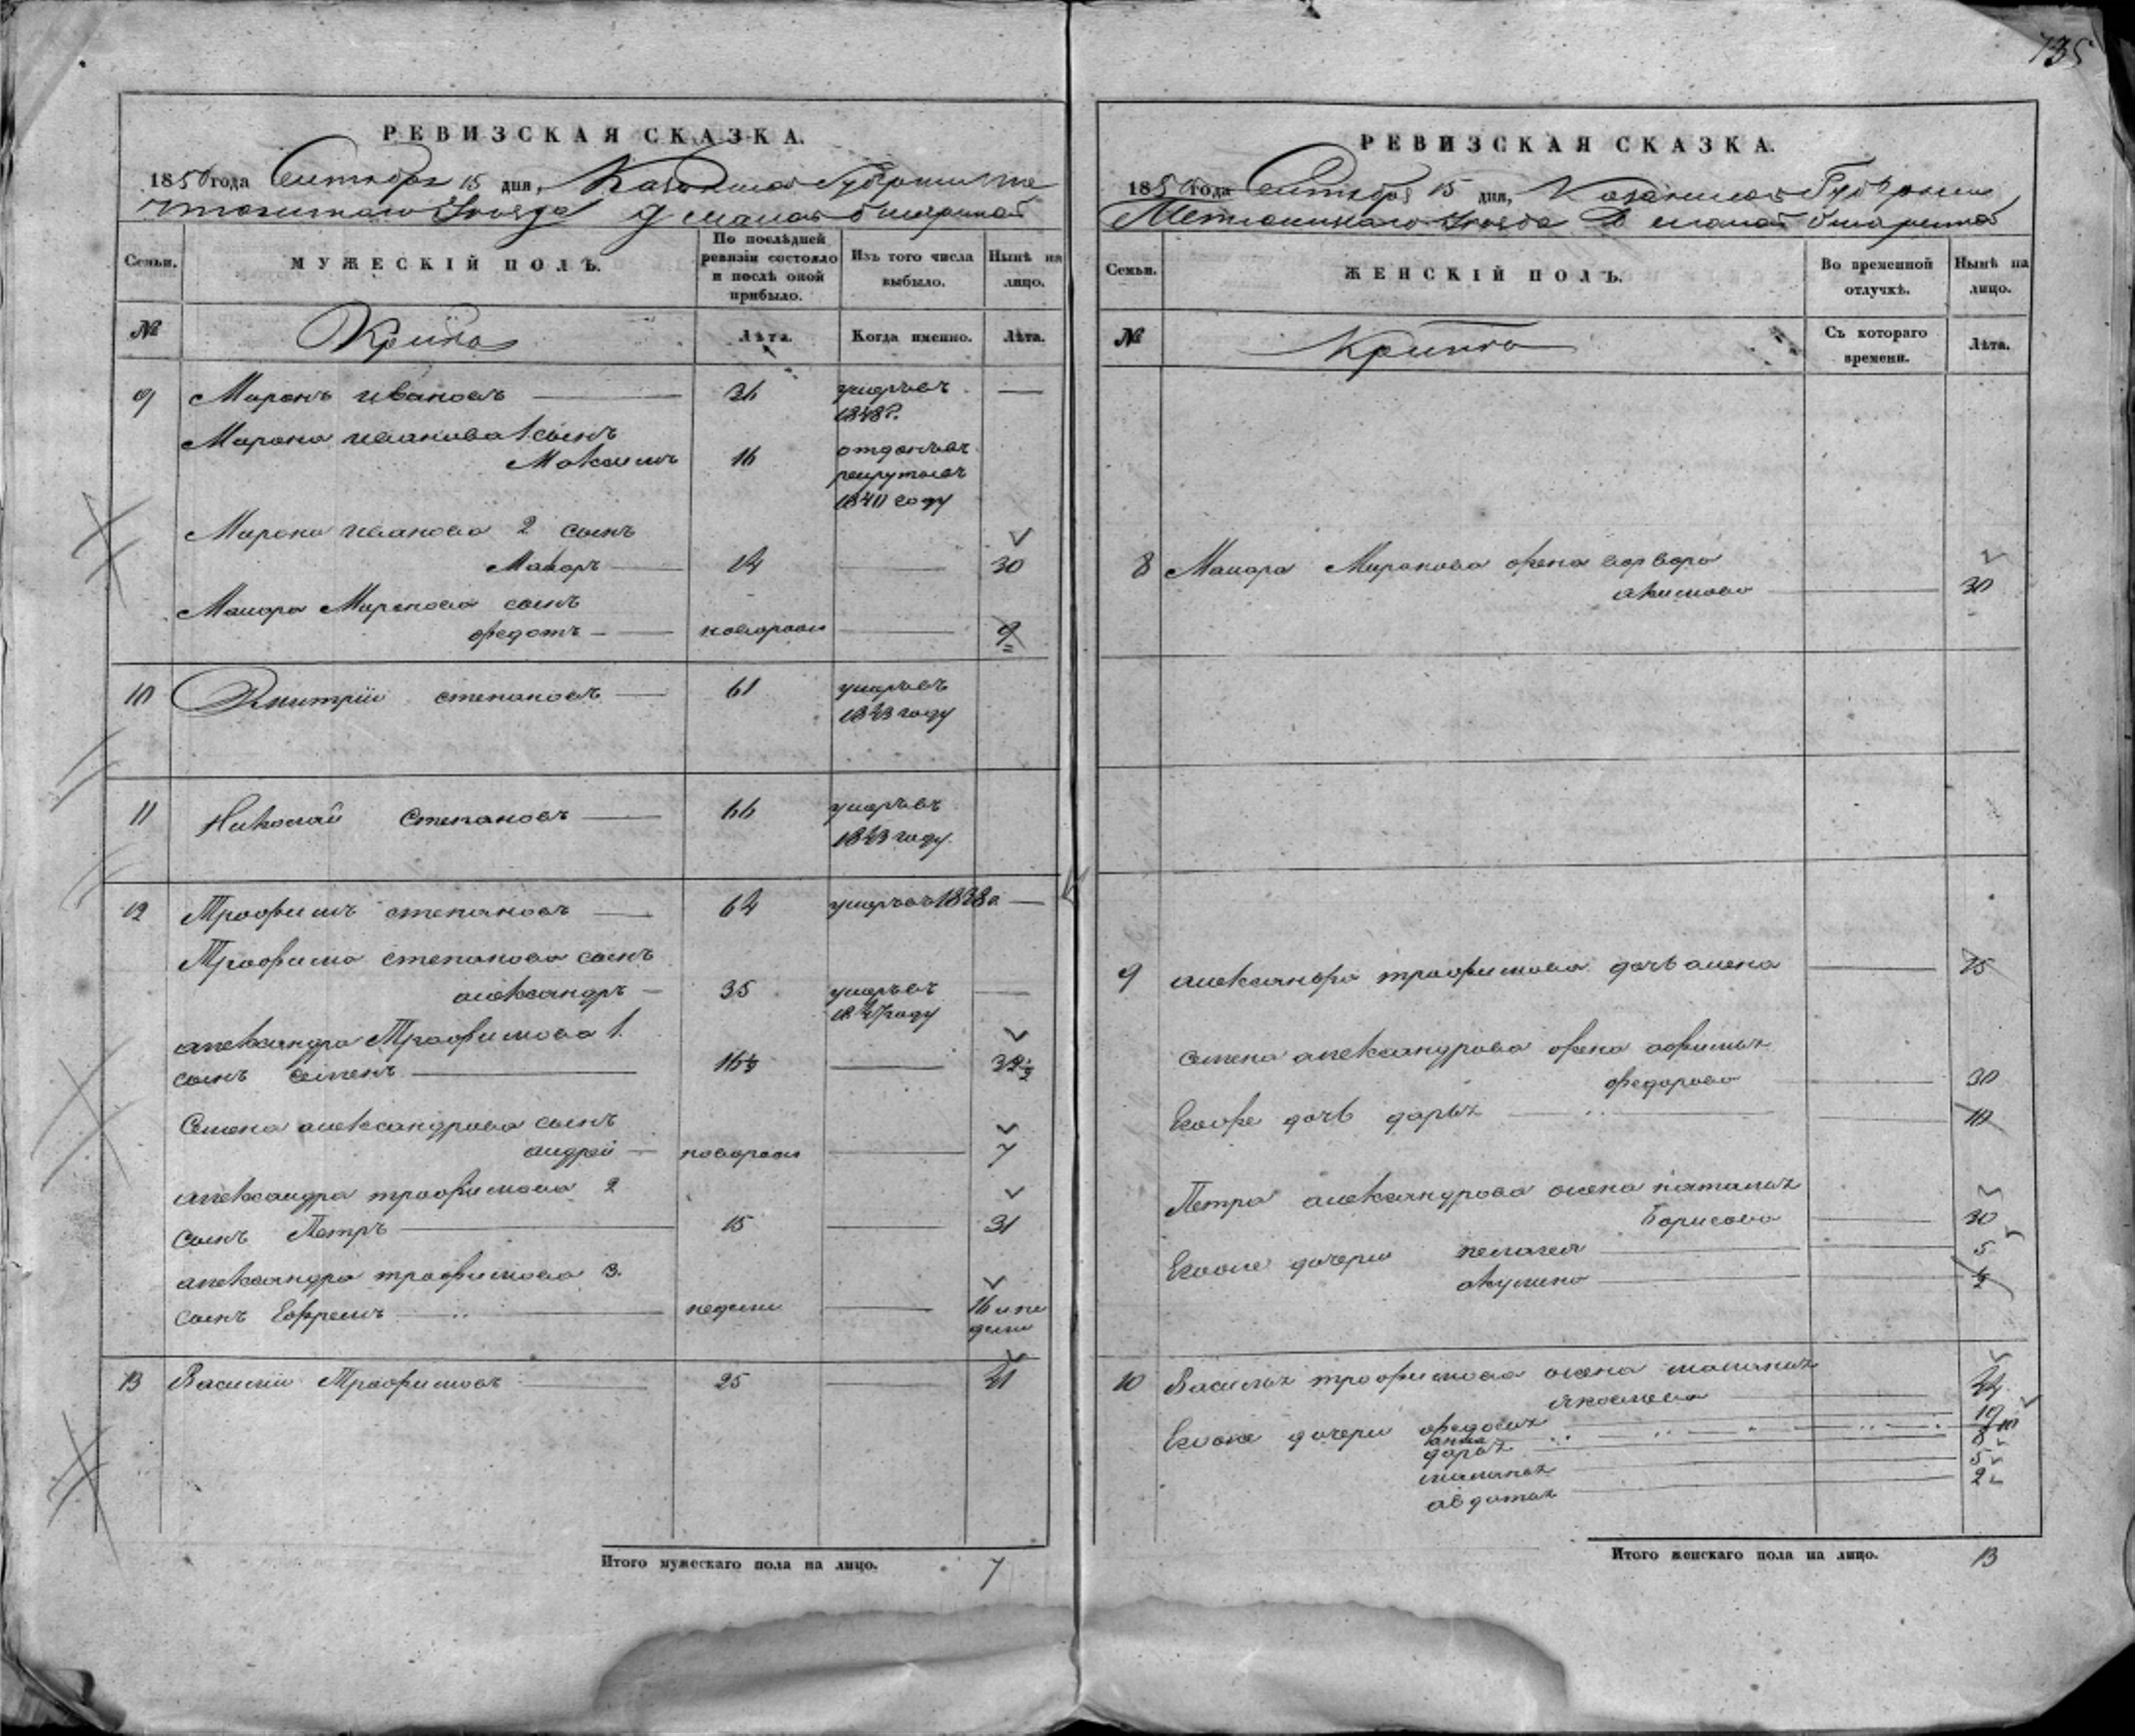 735
РЕВИЗСКАЯ СКАЗКА.
1850 года Сентября 15 дня, Казанской Губернии Те
тюшскаго Уезда Д малой
Семьи.
МУЖЕСКІЙ ПОЛЪ.
По послѣдней ревизіи состояло и послѣ оной прибыло.
Изъ того числа выбыло.
Нынѣ на лицо.
№
Лѣта.
Когда именно.
Лѣта.
9 Миронъ ивановъ 36 умръвъ —
1848 г.
Мирона иванова 1. сынъ
Максимъ 16 отданъвъ
рекрутовъ
1840 году
Мирона иванова 2 сынъ
Макаръ 14 — 30
Макара Миронова сынъ
федотъ — новорож — 9
10 Дмитрій степановъ — 61 умръвъ
1843 году
11 Николай Степановъ — 66 умръвъ
1843 году.
12 Трофимъ степановъ — 64 умръвъ 1838 г. —
Трофима степанова сынъ
александръ — 35 умръвъ —
1847 году
александра Трофимова 1.
сынъ семенъ — 16½ — 32½
Семена александрова сынъ
андрей — новорож — 7
александра трофимова 2
сынъ Петръ — 15 — 31
александра трофимова 3.
сынъ Ефремъ — недели — 16 и не
дели
13 Василий Трофимовъ — 25 — 41
Итого мужескаго пола на лицо. 7
РЕВИЗСКАЯ СКАЗКА.
1850 года Сентября 15 дня, Казанской Губернии
Тетюшскаго Уезда Д малой
Семьи.
ЖЕНСКІЙ ПОЛЪ.
Во временной отлучкѣ.
Нынѣ на лицо.
№
Съ котораго времени.
Лѣта.
8 Макара Миронова жена варвара
акимова — 30
9 александра трофимова дочь алена — 15
Семена александрова жена афимья
федорова — 30
Евоже дочь дарья — 10
Петра александрова жена наталья
Борисова — 30
Евоже дочери пелагея — 5
акулина — ½
10 Василья трофимова жена маланья
яковлева — 44
Евоже дочери федосья 19
анна 10
дарья 8
маланья 5
авдотья 2
Итого женскаго пола на лицо. 13